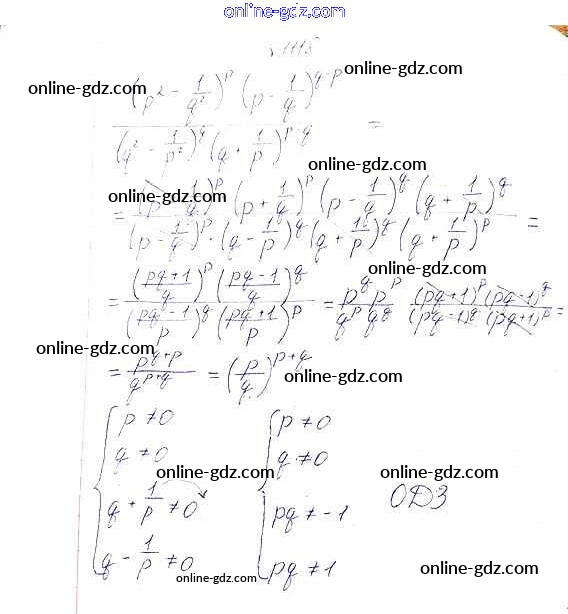 online-gdz.com
1118
(p² - 1/q²)^p (p - 1/q)^(q-p) online-gdz.com
online-gdz.com
(q² - 1/p²)^q (q + 1/p)^(p-q) =
online-gdz.com
online-gdz.com
= (p - 1/q)^p (p + 1/q)^p (p - 1/q)^q (q + 1/p)^q
(p - 1/q)^p · (q - 1/p)^q (q + 1/p)^q (q + 1/p)^p =
online-gdz.com
= ((pq+1)/q)^p ((pq-1)/q)^q / ((pq-1)/p)^q ((pq+1)/p)^p = p^q p^p / q^p q^q (pq+1)^p (pq-1)^q / (pq-1)^q (pq+1)^p =
online-gdz.com
= p^(q+p) / q^(p+q) = (p/q)^(p+q)
online-gdz.com
p ≠ 0 p ≠ 0
q ≠ 0 q ≠ 0
online-gdz.com online-gdz.com
q + 1/p ≠ 0 pq ≠ -1 ОДЗ
q - 1/p ≠ 0 pq ≠ 1
online-gdz.com online-gdz.com